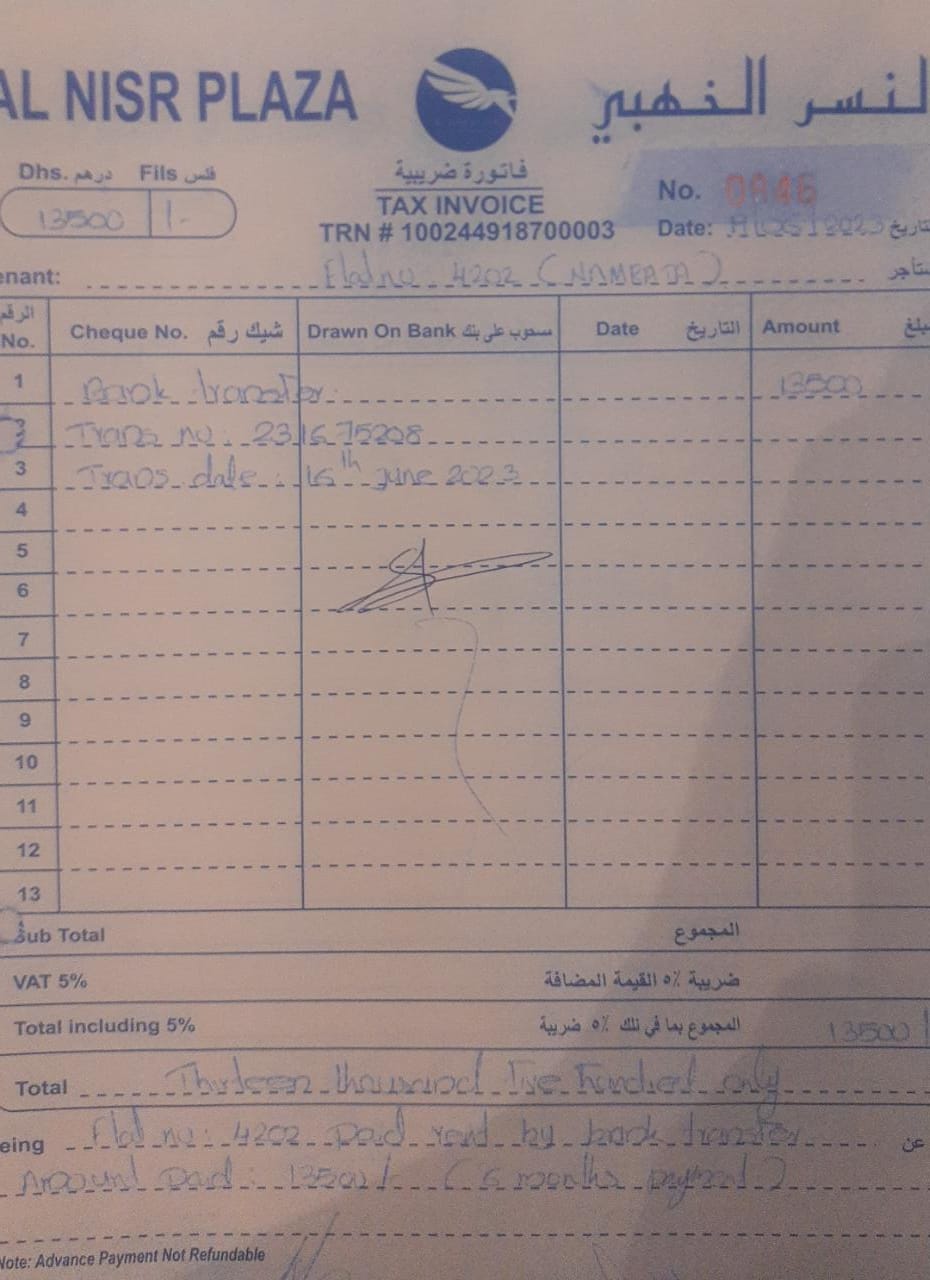 AL NISR PLAZA
النسر الذهبي
Dhs. درهم Fils فلس
13500 1-
فاتورة ضريبية
TAX INVOICE
TRN # 100244918700003
No. 0846
Date: 2023 تاريخ
enant: Flat no: 4202 (NAMERATA) ستأجر
الرقم No. Cheque No. شيك رقم Drawn On Bank مسحوب على بنك Date التاريخ Amount بلغ
1 Bank transfer 13500
2 Trans no: 231675208
3 Trans date: 16th June 2023
4
5
6
7
8
9
10
11
12
13
Sub Total المجموع
VAT 5% ضريبة ٥٪ القيمة المضافة
Total including 5% المجموع بما في ذلك ٥٪ ضريبة 13500/
Total Thirteen thousand five hundred only
eing Flat no: 4202 paid rent by bank transfer عن
Amount paid: 13500/- (6 months payment)
Note: Advance Payment Not Refundable